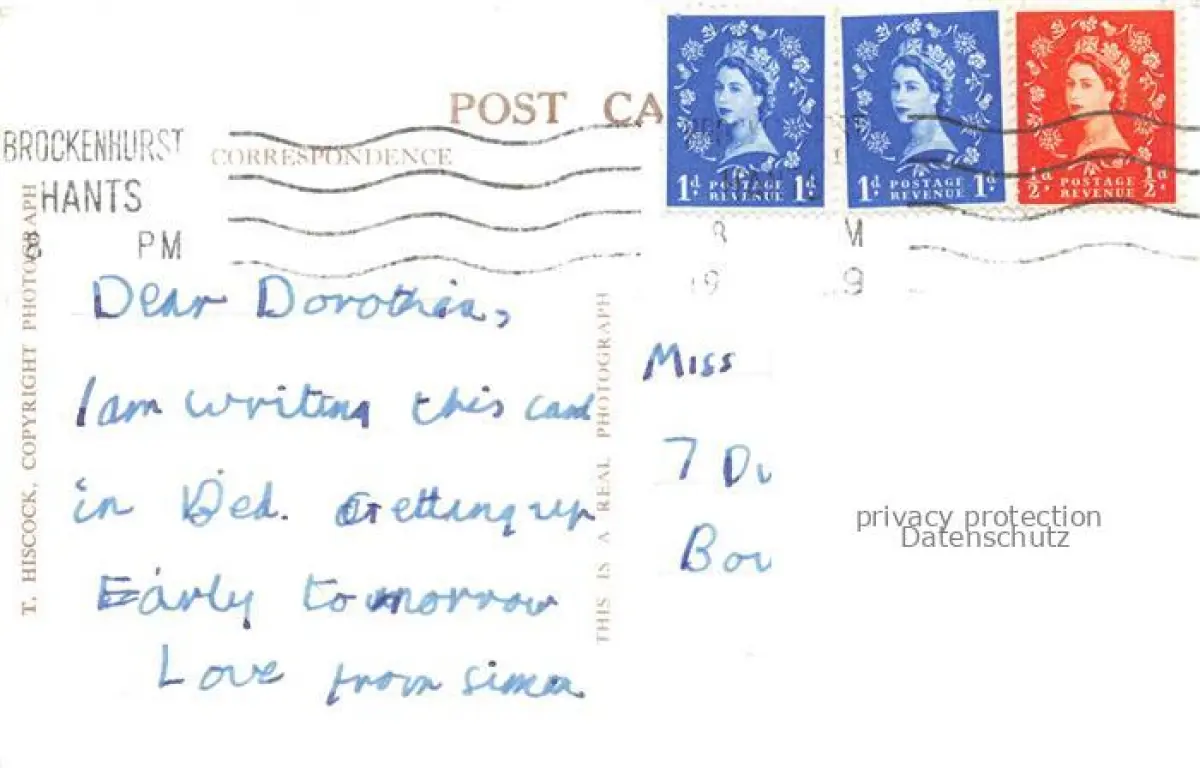 POST CA
CORRESPONDENCE
BROCKENHURST
HANTS
8 PM
1d POSTAGE REVENUE 1d
1d POSTAGE REVENUE 1d
½d POSTAGE REVENUE ½d
R M
19 9
T. HISCOCK, COPYRIGHT PHOTOGRAPH
Dear Dorothea,
I am writing this card
in Bed. Getting up
Early tomorrow
Love from Simon
THIS IS A REAL PHOTOGRAPH
Miss
7
privacy protection
Datenschutz